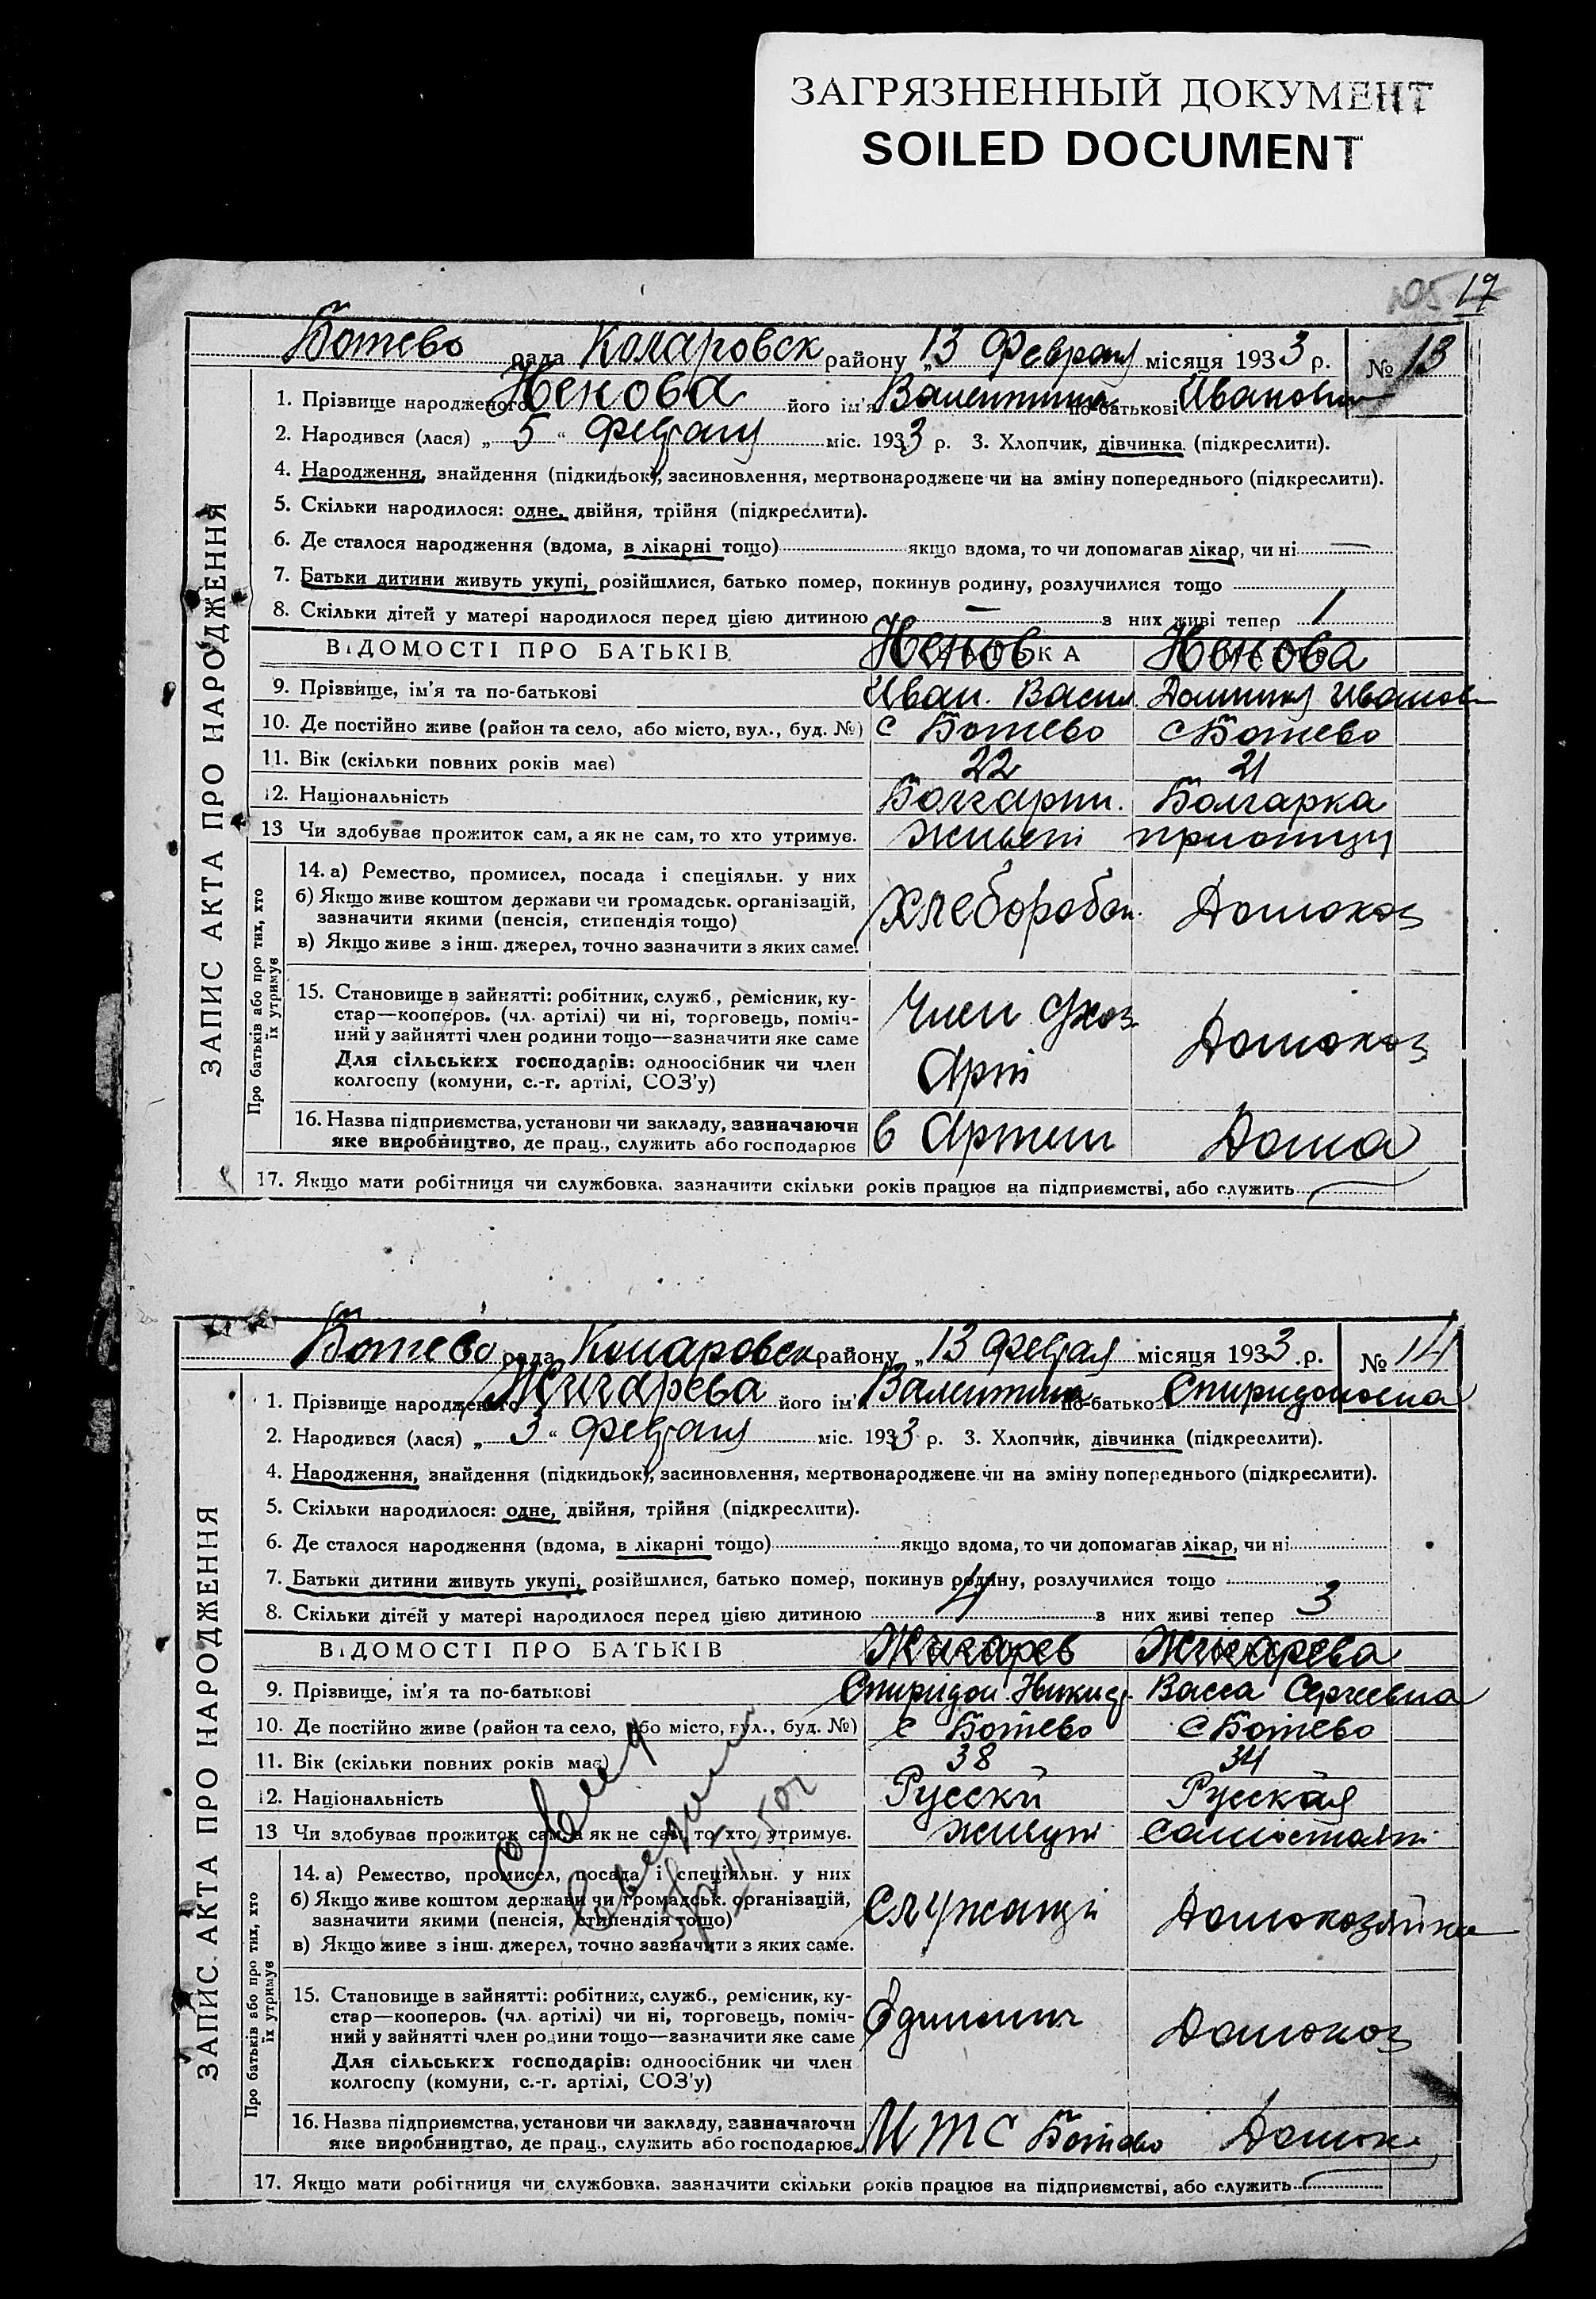 ЗАГРЯЗНЕННЫЙ ДОКУМЕНТ
SOILED DOCUMENT
17
Ботево рада Коларовск району „13 Февраля місяця 1933 р. № 13
1. Прізвище народженого Ненова його ім'я Валентина по-батькові Иванович
2. Народився (лася) „5“ февраля міс. 1933 р. 3. Хлопчик, дівчинка (підкреслити).
4. Народження, знайдення (підкидьок), засиновлення, мертвонароджене чи на зміну попереднього (підкреслити).
5. Скільки народилося: одне, двійня, трійня (підкреслити).
6. Де сталося народження (вдома, в лікарні тощо) якщо вдома, то чи допомагав лікар, чи ні —
7. Батьки дитини живуть укупі, розійшлися, батько помер, покинув родину, розлучилися тощо
8. Скільки дітей у матері народилося перед цією дитиною — з них живі тепер 1
ВІДОМОСТІ ПРО БАТЬКІВ Ненов Ненова
9. Прізвище, ім'я та по-батькові Иван. Васил. Иванов
10. Де постійно живе (район та село, або місто, вул., буд. №) с Ботево с Ботево
11. Вік (скільки повних років має) 22 21
12. Національність Болгарин. Болгарка
13 Чи здобував прожиток сам, а як не сам, то хто утримує.
14. а) Ремество, промисел, посада і спеціяльн. у них
б) Якщо живе коштом держави чи громадськ. організацій,
зазначити якими (пенсія, стипендія тощо)
в) Якщо живе з інш. джерел, точно зазначити з яких саме.
Хлебороб Домохоз
15. Становище в зайнятті: робітник, служб., ремісник, ку-
стар—кооперов. (чл. артілі) чи ні, торговець, поміч-
ний у зайнятті член родини тощо—зазначити яке саме
Для сільських господарів: одноосібник чи член
колгоспу (комуни, с.-г. артілі, СОЗ'у)
Член Схоз
Арт Домохоз
16. Назва підприємства, установи чи закладу, зазначаючи
яке виробництво, де прац., служить або господарює
в Артели Дома
17. Якщо мати робітниця чи службовка, зазначити скільки років працює на підприємстві, або служить
ЗАПИС АКТА ПРО НАРОДЖЕННЯ
Про батьків або про тих, хто
їх утримує
Ботево рада Коларовск району „13 февраля місяця 1933 р. № 14
1. Прізвище народженого Жигарева його ім'я Валентина по-батькові Спиридоновна
2. Народився (лася) „3“ февраля міс. 1933 р. 3. Хлопчик, дівчинка (підкреслити).
4. Народження, знайдення (підкидьок), засиновлення, мертвонароджене чи на зміну попереднього (підкреслити).
5. Скільки народилося: одне, двійня, трійня (підкреслити).
6. Де сталося народження (вдома, в лікарні тощо) якщо вдома, то чи допомагав лікар, чи ні
7. Батьки дитини живуть укупі, розійшлися, батько помер, покинув родину, розлучилися тощо
8. Скільки дітей у матері народилося перед цією дитиною 4 з них живі тепер 3
ВІДОМОСТІ ПРО БАТЬКІВ Жигарев Жигарева
9. Прізвище, ім'я та по-батькові Спиридон Никид. Васса Сергеевна
10. Де постійно живе (район та село, або місто, вул., буд. №) с Ботево с Ботево
11. Вік (скільки повних років має) 38 34
12. Національність Русски Русская
13 Чи здобував прожиток сам, а як не сам, то хто утримує. живут
14. а) Ремество, промисел, посада і спеціяльн. у них
б) Якщо живе коштом держави чи громадськ. організацій,
зазначити якими (пенсія, стипендія тощо)
в) Якщо живе з інш. джерел, точно зазначити з яких саме.
Служащи Домохозяйка
15. Становище в зайнятті: робітник, служб., ремісник, ку-
стар—кооперов. (чл. артілі) чи ні, торговець, поміч-
ний у зайнятті член родини тощо—зазначити яке саме
Для сільських господарів: одноосібник чи член
колгоспу (комуни, с.-г. артілі, СОЗ'у)
Домохоз
16. Назва підприємства, установи чи закладу, зазначаючи
яке виробництво, де прац., служить або господарює.
МТС Ботево
17. Якщо мати робітниця чи службовка, зазначити скільки років працює на підприємстві, або служить
ЗАПИС АКТА ПРО НАРОДЖЕННЯ
Про батьків або про тих, хто
їх утримує